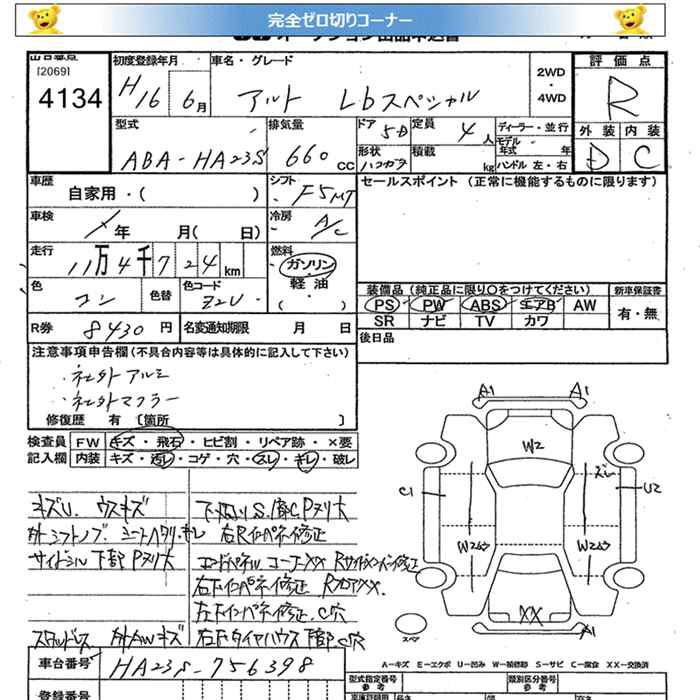 完全ゼロ切りコーナー
[2069]
4134
初度登録年月
H16 6月
車名・グレード
アルト Lbスペシャル
2WD
・
4WD
評価点
R
外装 内装
D C
型式
ABA-HA23S
排気量
660 CC
ドア 5D
定員 4人
ディーラー・並行
モデル年式 年
形状 ハコガタ
積載 kg
ハンドル 左・右
車歴
自家用・( )
シフト
F5MT
セールスポイント (正常に機能するものに限ります)
車検
年 月( 日)
冷房
A/C
走行
11万4千724km
燃料
ガソリン
軽油
( ・ )
色
コン
色替
色コード
Z2U
装備品 (純正品に限り○をつけてください)
PS PW ABS エアB AW
SR ナビ TV カワ
新車保証書
有・無
R券 8430円
名変通知期限 月 日
後日品
注意事項申告欄(不具合内容等は具体的に記入して下さい)
・社外アルミ
・社外マフラー
修復歴 有 [箇所 ]
検査員
記入欄
FW キズ・飛石・ヒビ割・リペア跡・×要
内装 キズ・汚レ・コゲ・穴・スレ・キレ・破レ
キズU. ウスキズ
外シフトノブ. シートヘタリ・キレ
サイドシル下部Pヌリ大
下廻りS.
右Rインパネ修正
エンドパネルコーナーXX
右下インパネ修正
左下インパネ修正. C穴
スタッドレス 外AWキズ
右下タイヤハウス下部C穴
A1 A1
W2
C1
ズレ
U2
W2ムラ W2ムラ
XX
A1
スペア
A-キズ E-エクボ U-凹み W-補修跡 S-サビ C-腐食 XX-交換済
車台番号 HA23S-756398
登録番号
型式指定番号
参考
類別区分番号
参考